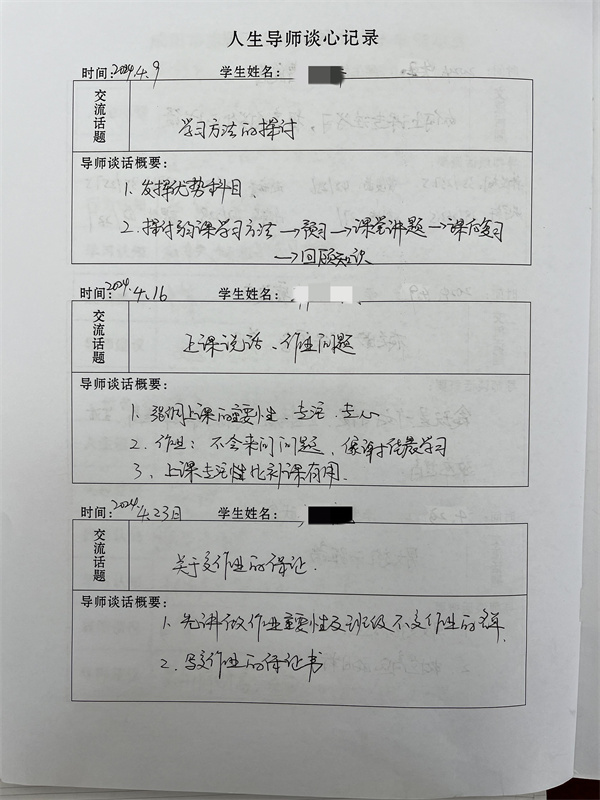 人生导师谈心记录
时间：2024.4.9 学生姓名：
交流话题
学习方法的探讨
导师谈话概要：
1. 发挥优势科目、
2. 探讨约课学习方法→预习→课堂讲题→课后复习
→回顾知识
时间：2024.4.16 学生姓名：
交流话题
上课说话、作业问题
导师谈话概要：
1. 强调上课的重要性、专注、专心
2. 作业：不会来问问题、保
学习
3、上课专注性比补课有用.
时间：2024.4.23日 学生姓名：
交流话题
关于交作业的保证.
导师谈话概要：
1. 先讲做作业重要性及班级不交作业的名单.
2. 写交作业的保证书